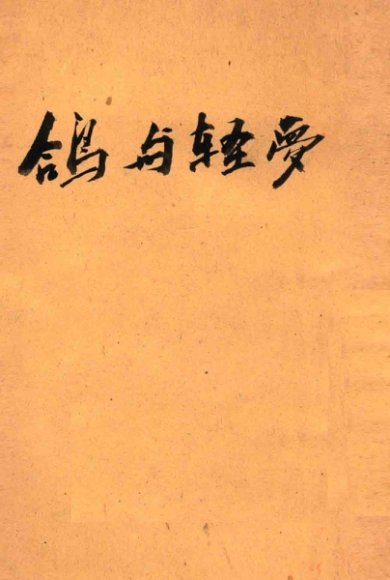 鸽与轻梦